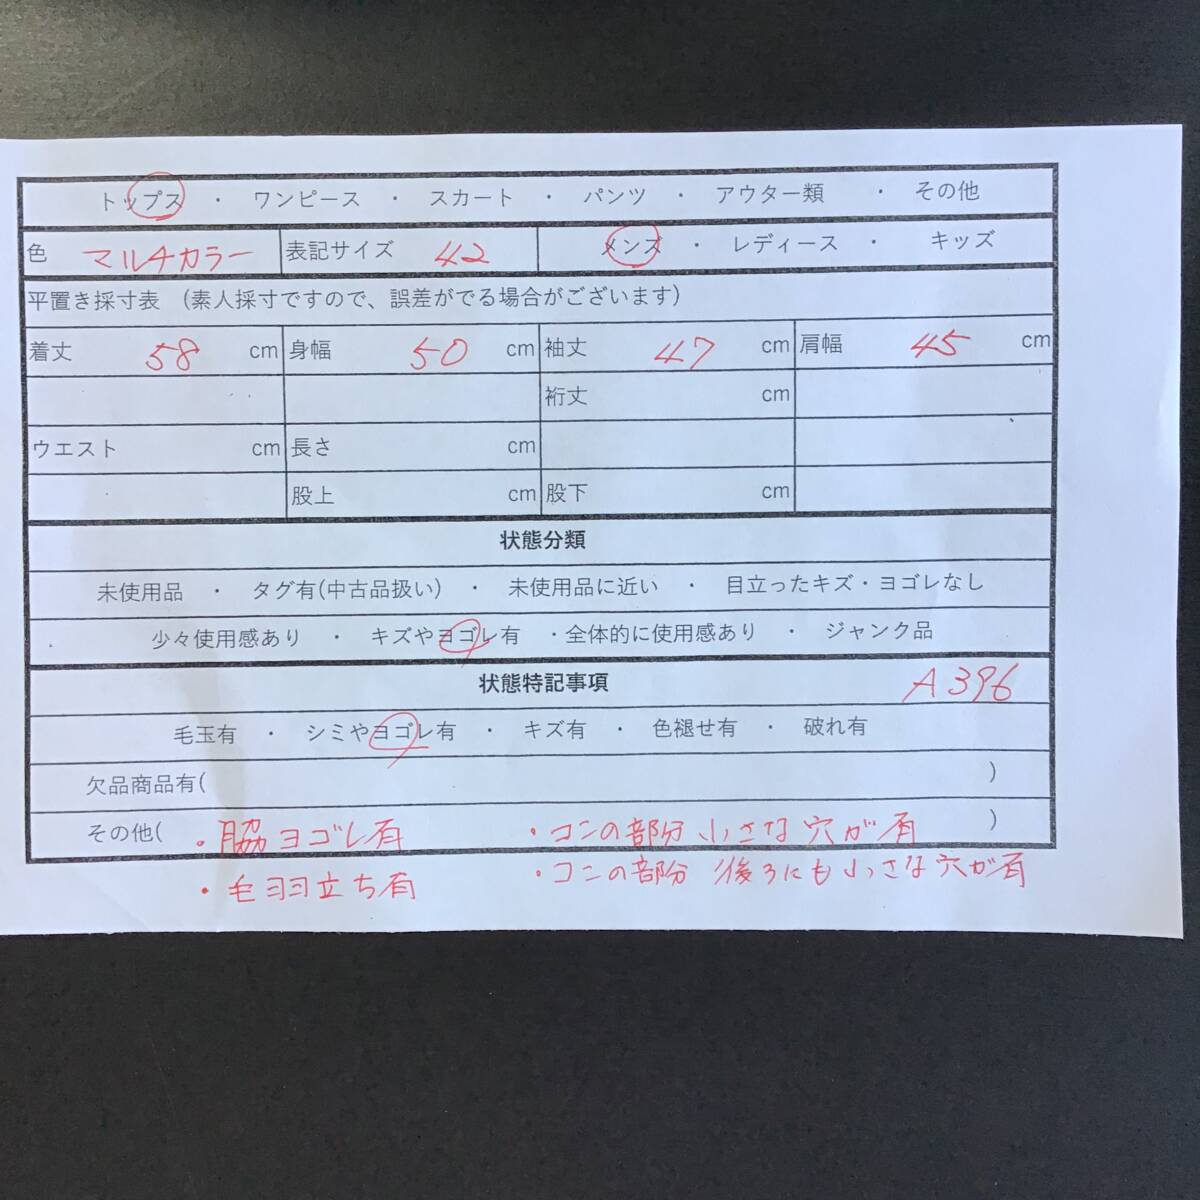 トップス ・ ワンピース ・ スカート ・ パンツ ・ アウター類 ・ その他
色 マルチカラー 表記サイズ 42 メンズ ・ レディース ・ キッズ
平置き採寸表 (素人採寸ですので、誤差がでる場合がございます)
着丈 58 cm 身幅 50 cm 袖丈 47 cm 肩幅 45 cm
裄丈 cm
ウエスト cm 長さ cm
股上 cm 股下 cm
状態分類
未使用品 ・ タグ有(中古品扱い) ・ 未使用品に近い ・ 目立ったキズ・ヨゴレなし
少々使用感あり ・ キズやヨゴレ有 ・全体的に使用感あり ・ ジャンク品
状態特記事項 A396
毛玉有 ・ シミやヨゴレ有 ・ キズ有 ・ 色褪せ有 ・ 破れ有
欠品商品有( )
その他( ・脇ヨゴレ有 ・コンの部分小さな穴が有 )
・毛羽立ち有 ・コンの部分 後ろにも小さな穴が有